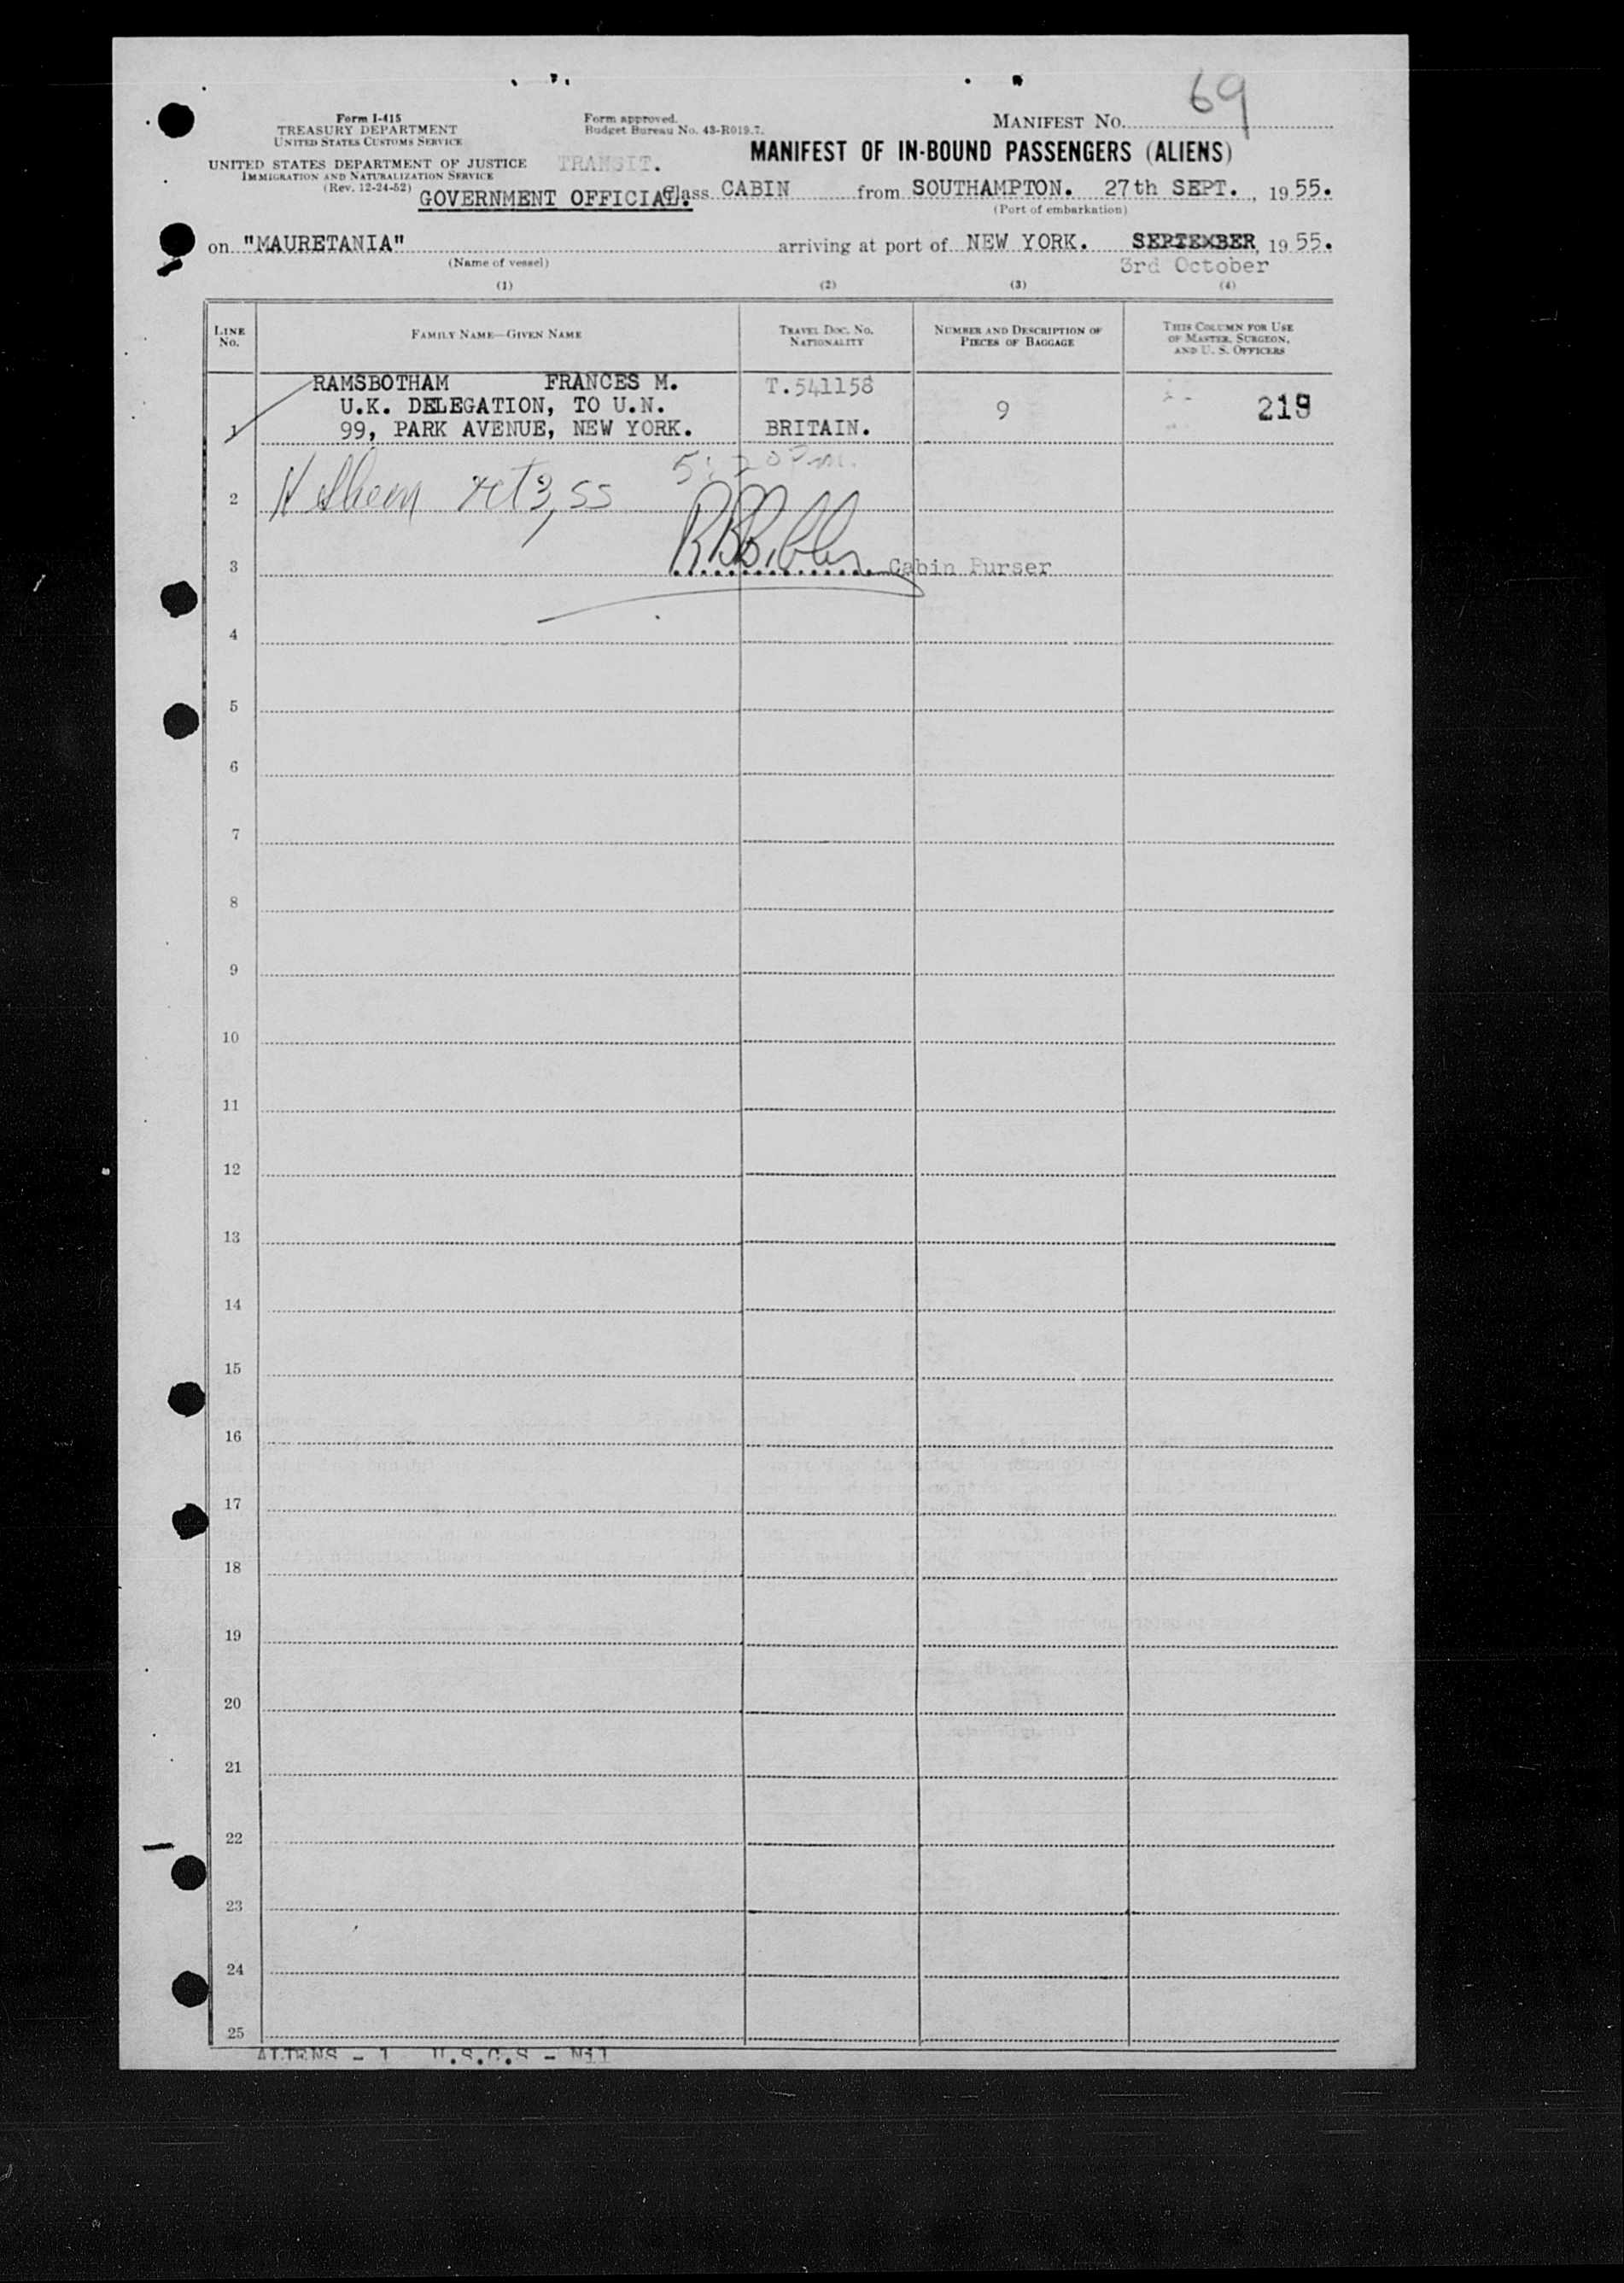 69
Form I-415
TREASURY DEPARTMENT
UNITED STATES CUSTOMS SERVICE
UNITED STATES DEPARTMENT OF JUSTICE
IMMIGRATION AND NATURALIZATION SERVICE
(Rev. 12-24-52)
Form approved.
Budget Bureau No. 43-R019.7.
TRANSIT.
MANIFEST NO.
MANIFEST OF IN-BOUND PASSENGERS (ALIENS)
GOVERNMENT OFFICIAL. Class CABIN from SOUTHAMPTON. 27th SEPT., 1955.
(Port of embarkation)
on "MAURETANIA" arriving at port of NEW YORK. SEPTEMBER, 1955.
(Name of vessel) 3rd October
(1) (2) (3) (4)
LINE NO.
FAMILY NAME—GIVEN NAME
TRAVEL DOC. NO.
NATIONALITY
NUMBER AND DESCRIPTION OF
PIECES OF BAGGAGE
THIS COLUMN FOR USE
OF MASTER, SURGEON,
AND U. S. OFFICERS
RAMSBOTHAM FRANCES M. T.541158
U.K. DELEGATION, TO U.N. 9 219
1 99, PARK AVENUE, NEW YORK. BRITAIN.
5:20 Pm.
2
3 Cabin Purser
4
5
6
7
8
9
10
11
12
13
14
15
16
17
18
19
20
21
22
23
24
25
ALIENS - 1 U.S.C.S - Nil